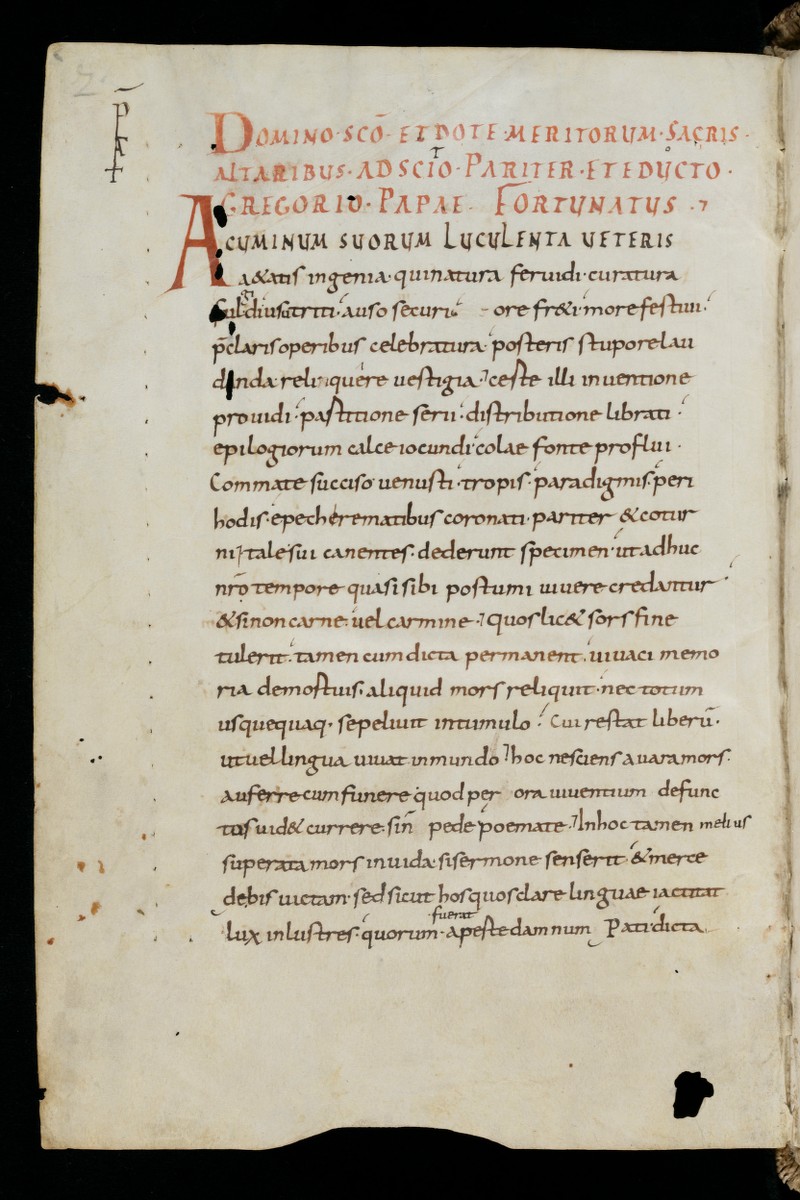 DOMINO·SCŌ· ET DOTE·MERITORUM·SACRIS·
ALTARIBUS·ADSCITO·PARITER·ET EDUCTO·
GREGORIO·PAPAE FORTUNATUS·
ACUMINUM SUORUM LUCULENTA UETERIS
a&atis ingenia·qui natura feruidi·curatura
ore fr&i more festiui·
p̄claris operibus celebratura·posteris stupore lau
danda reliquere uestigia·⁊ceste illi inuentione
prouidi·partitione serii·distributione librati·
epilogiorum calce iocundi·colae fonte proflui·
Commate succiso uenusti·tropis·paradigmis·peri
hodis·epecherematibus coronati·pariter &cotur
ni⁊tale sui canentes·dederunt specimen·ut adhuc
nr̄o tempore quasi sibi postumi uiuere credantur·
&si non carne·uel carmine·⁊quos lic& sors fine
tulerit·tamen cum dicta permanent·uiuaci memo
ria demostuis·aliquid mors reliquit·nec totum
usquequaq·sepeliuit in tumulo·Cui restat liberū·
ut uel lingua uiuat in mundo·⁊hoc nesciens auara mors·
auferre cum funere quod per ora uiuentium defunc
tos uid& currere·sin̄ pede poemate·⁊Inhoc tamen melius
superata mors inuida·si sermone senserit·&merce
debis uictam·sed sicut hos quos clare linguae iactitat
fuerat
lux inlustres·quorum·a peste damnum Pati·dicta